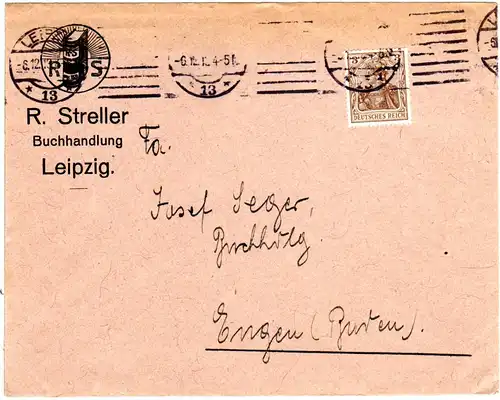 LEIPZIG
-6.12.
* 13 *
-6.12.11. 4-5N.
* 13 *
R S
DEUTSCHES REICH
R. Streller
Buchhandlung
Leipzig.
Fa.
Josef Seger,
Buchhdlg.
Engen (Baden).